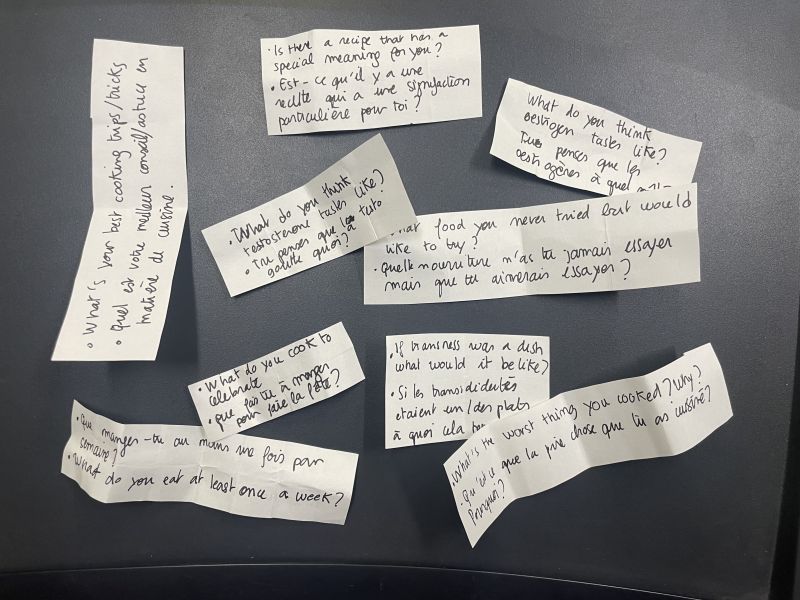 • What's your best cooking trips/tricks
• Quel est votre meilleur conseil/astuce en
matière de cuisine.
• Is there a recipe that has a
special meaning for you?
• Est-ce qu'il y a une
recette qui a une
particulière pour toi?
What do you think
oestrogen tastes like?
Tu penses que les
oestrogènes à quel
• What do you think
testosterone tastes like?
• Tu penses que la testo
goutte quoi?
What food you never tried but would
like to try?
• Quelle nourriture n'as tu jamais essayer
mais que tu aimerais essayer?
• What do you cook to
celebrate
• que fais tu à manger
pour faire la fête?
• If transness was a dish
what would it be like?
• Si les transidentités
etaient un/des plats
à quoi cela
• Que manges-tu au moins une fois par
semaine?
• What do you eat at least once a week?
• What's the worst thing you cooked? Why?
• Qu'est ce que la pire chose que tu as cuisiné?
Pourquoi?